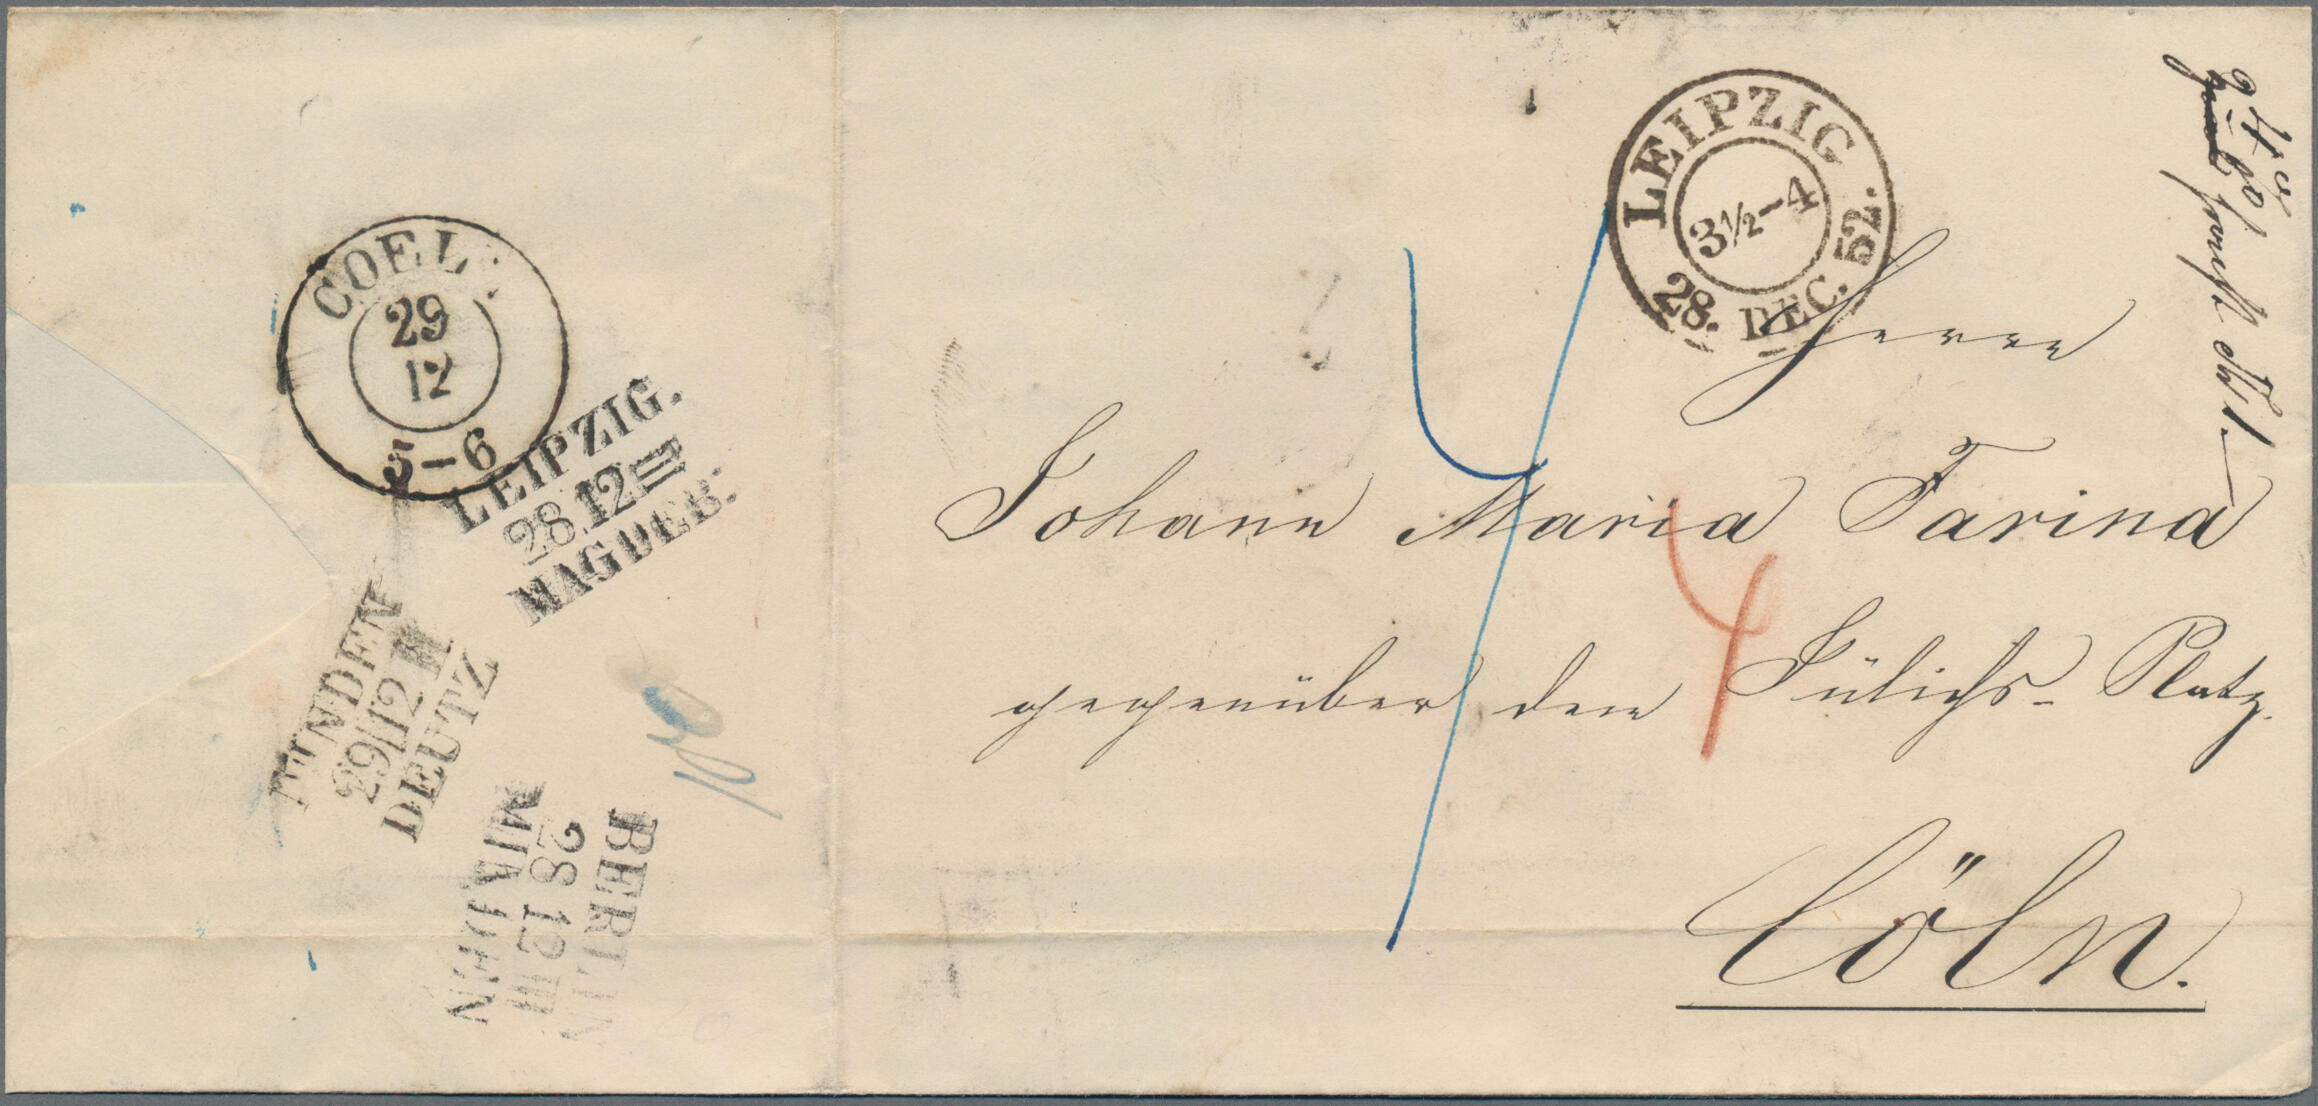 COEL:
29
12
5-6
LEIPZIG.
28.12 III
MAGDEB:
MINDEN
29/12 II
DEUTZ
BERLIN
28 12 III
MINDEN
LEIPZIG
3½-4
28. DEC. 52.
4
4
Herrn
Johann Maria Farina
gegenüber dem Jülichs-Platz.
Cöln.